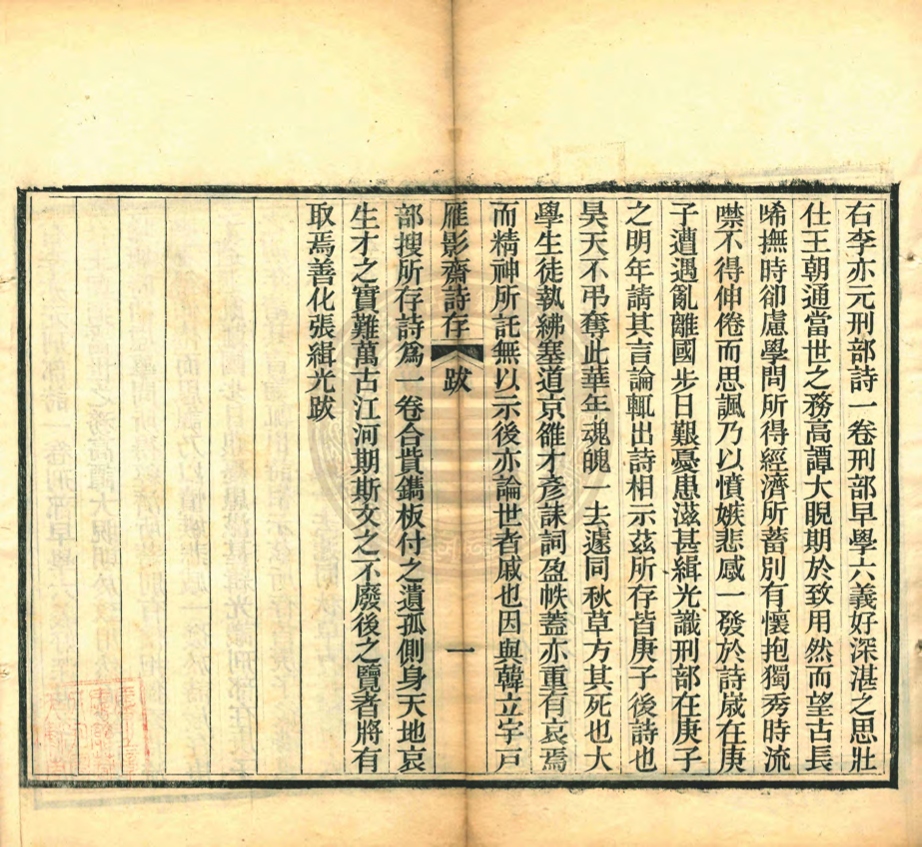 右李亦元刑部詩一卷刑部早學六義好深湛之思壯
仕王朝通當世之務高譚大睨期於致用然而望古長
唏撫時卻慮學問所得經濟所蓄別有懷抱獨秀時流
噤不得伸倦而思諷乃以憤嫉悲感一發於詩歲在庚
子遭遇亂離國步日艱憂患滋甚緝光識刑部在庚子
之明年請其言論輒出詩相示茲所存皆庚子後詩也
昊天不弔奪此華年魂魄一去遽同秋草方其死也大
學生徒執紼塞道京雒才彥誄詞盈帙蓋亦重有哀焉
而精神所託無以示後亦論世者戚也因與韓立宇戶
雁影齋詩存 跋 一
部搜所存詩爲一卷合貲鐫板付之遺孤側身天地哀
生才之實難萬古江河期斯文之不廢後之覽者將有
取焉善化張緝光跋